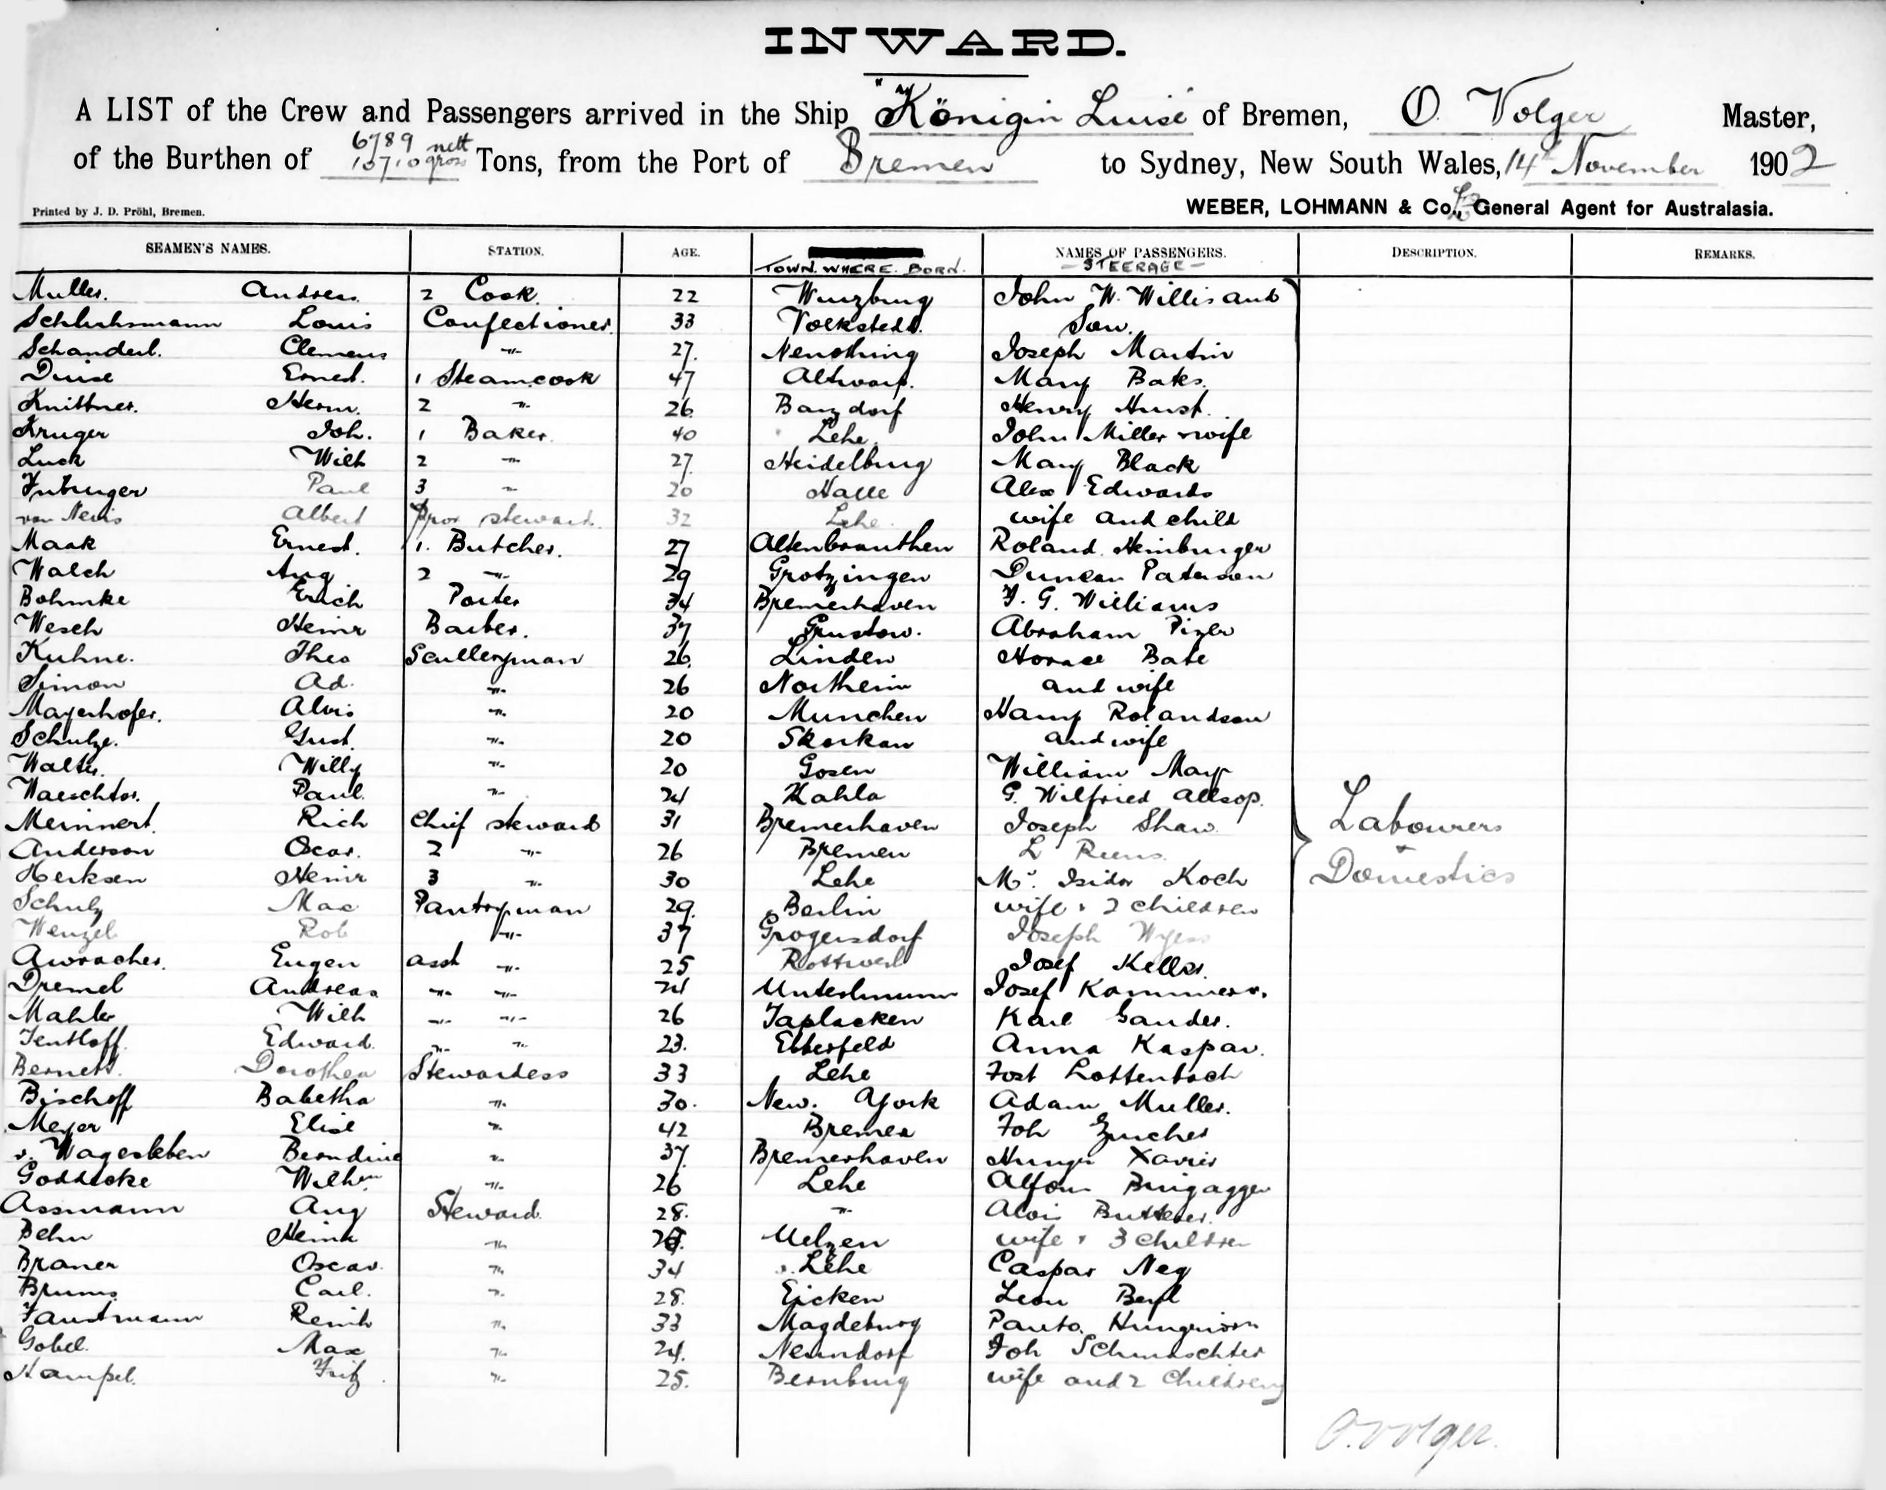 INWARD.
A LIST of the Crew and Passengers arrived in the Ship "Königin Luise" of Bremen, O. Volger Master,
of the Burthen of 6789 nett 10710 gross Tons, from the Port of Bremen to Sydney, New South Wales, 14th November 1902
Printed by J. D. Pröhl, Bremen.
WEBER, LOHMANN & Co., General Agent for Australasia.
SEAMEN'S NAMES. STATION. AGE. TOWN WHERE BORN. NAMES OF PASSENGERS. STEERAGE DESCRIPTION. REMARKS.
Muller. Andreas. 2 Cook. 22 Wurzburg John W. Willis and
Louis Confectioner. 33 Volkstedt. Son.
Schanderl. Clemens -"- 27. Joseph Martin
Ernest. 1 Steam cook 47 Altwarp. Mary Baks.
Knittner. Herm. 2 -"- 26. Banzdorf Henry Hurst.
Kruger Joh. 1 Baker. 40 Lehe. John Miller & wife
Luck Wilh 2 -"- 27. Heidelburg Mary Black
Paul 3 -"- 20 Halle Alex Edwards
von Nevis Albert Prov steward. 32 Lehe. wife and child
Maak Ernest. 1. Butcher. 27 Roland Heimburger
Walch Aug 2 -"- 29 Grotzingen Duncan Paterson
Bohmke Erich Porter 34 Bremerhaven F. G. Williams
Wesch Heinr Barber. 37 Grustow. Abraham Pizer
Kuhne. Theo Sculleryman 26. Linden Horace Bate
Simon Ad. -"- 26 Northeim and wife
Mayerhofer. Alois -"- 20 Munchen Harry Rolandson
Schulze. Gust. -"- 20 Skorkau and wife
Walter. Willy -"- 20 Gosen William May
Waechter. Paul. -"- 24 Kahla G. Wilfried Allsop.
Meinnert. Rich Chief steward 31 Bremerhaven Joseph Shaw. Labourers
Anderson Oscar. 2 -"- 26 Bremen L &
Herksen Heinr 3 -"- 30 Lehe Mr. Isidor Koch Domestics
Schulz Max Pantryman 29. Berlin wife & 2 children
Wenzel Rob -"- 37 Grogersdorf Joseph Wyess
Awracher. Eugen asst -"- 25 Rottweil Josef Keller.
Dremel Andreas -"- -"- 24 Josef Kammerer.
Mahler Wilh -"- -"- 26 Taplacken Karl Gander.
Tentloff. Edward. -"- -"- 23. Elberfeld Anna Kaspar.
Bernett. Dorothea Stewardess 33 Lehe Jost Lottenbach
Bischoff Babetha -"- 30. New. York Adam Muller.
Meyer Elise -" 42 Bremen Joh Zurcher
v. Wagesleben Berndine -" 37. Bremerhaven Xavier
Goddecke Wilhm -"- 26 Lehe Alfons
Assmann Aug Steward. 28. -"- Alois
Behn Heinr -"- Uelzen wife & 3 children
Braner Oscar. -"- 34 Lehe Caspar Neg
Brums Carl. -" 28. Eicken Leon Beyl
Faustmann Reinh -"- 33 Magdeburg
Gobel. Max -"- 24. Nenndorf Joh
Hampel. Fritz -"- 25. Bernburg wife and 2 children
O. Volger.